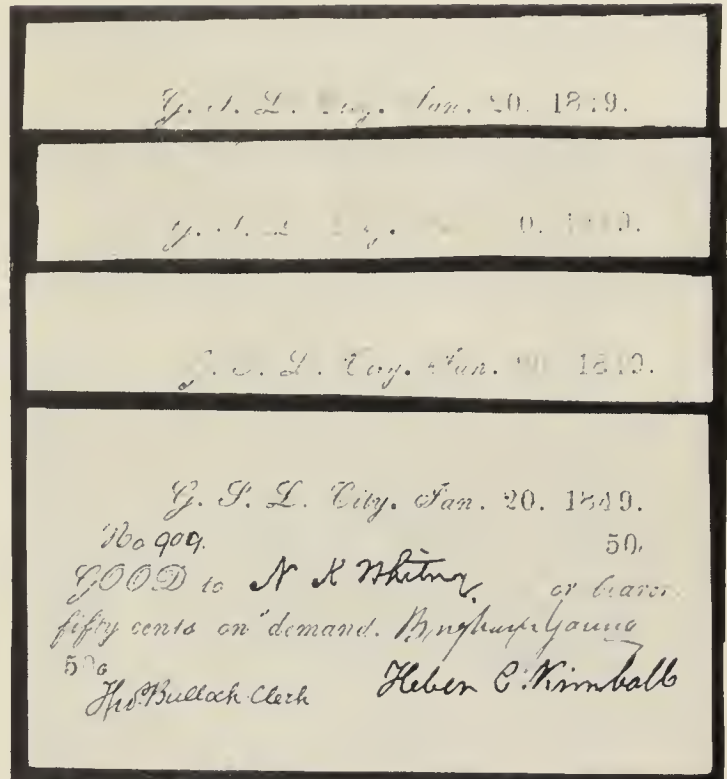 G. S. L. City. Jan. 20. 1849.
G. S. L. 0. 1849.
G. S. L. City. Jan. 1849.
G. S. L. City. Jan. 20. 1849.
No 909. 50.
GOOD to N K Whitney or bearer
fifty cents on demand. Brigham Young
50c
Tho's Bullock Clerk Heber C. Kimball